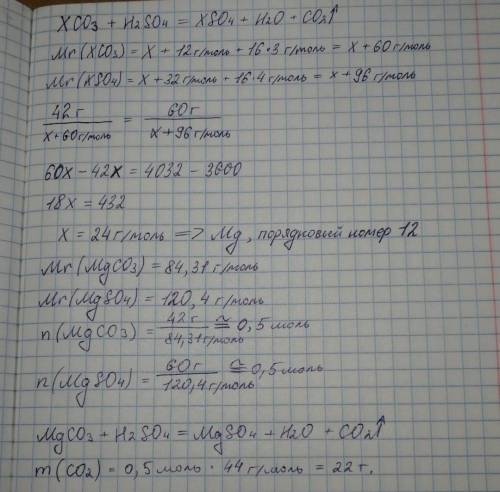 XCO₃ + H₂SO₄ = XSO₄ + H₂O + CO₂↑
Mr(XCO₃) = X + 12г/моль + 16·3г/моль = X + 60г/моль
Mr(XSO₄) = X + 32г/моль + 16·4г/моль = X + 96г/моль
42г / X+60г/моль = 60г / X+96г/моль
60X - 42X = 4032 - 3600
18X = 432
X = 24г/моль => Mg, порядковый номер 12
Mr(MgCO₃) = 84,31г/моль
Mr(MgSO₄) = 120,4г/моль
n(MgCO₃) = 42г / 84,31г/моль ≅ 0,5моль
n(MgSO₄) = 60г / 120,4г/моль ≅ 0,5моль
MgCO₃ + H₂SO₄ = MgSO₄ + H₂O + CO₂↑
m(CO₂) = 0,5моль · 44г/моль = 22г.